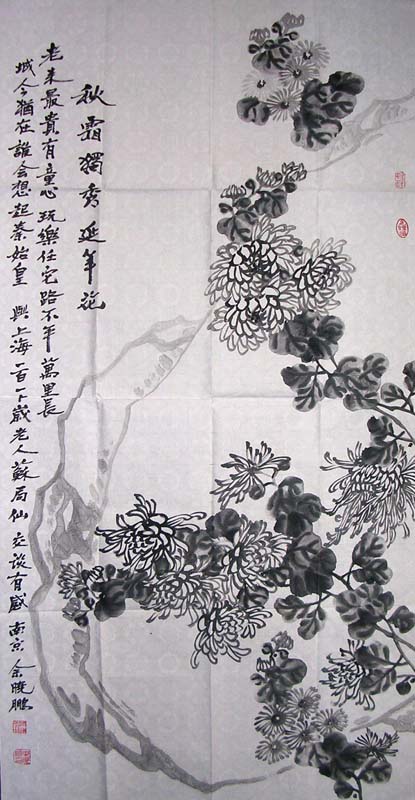 秋霜獨秀延年花
老来最貴有童心玩樂任它路不平萬里長
城今猶在誰會想起秦始皇 與上海一百十歲老人蘇局仙交談有感 南京 余曉鵬